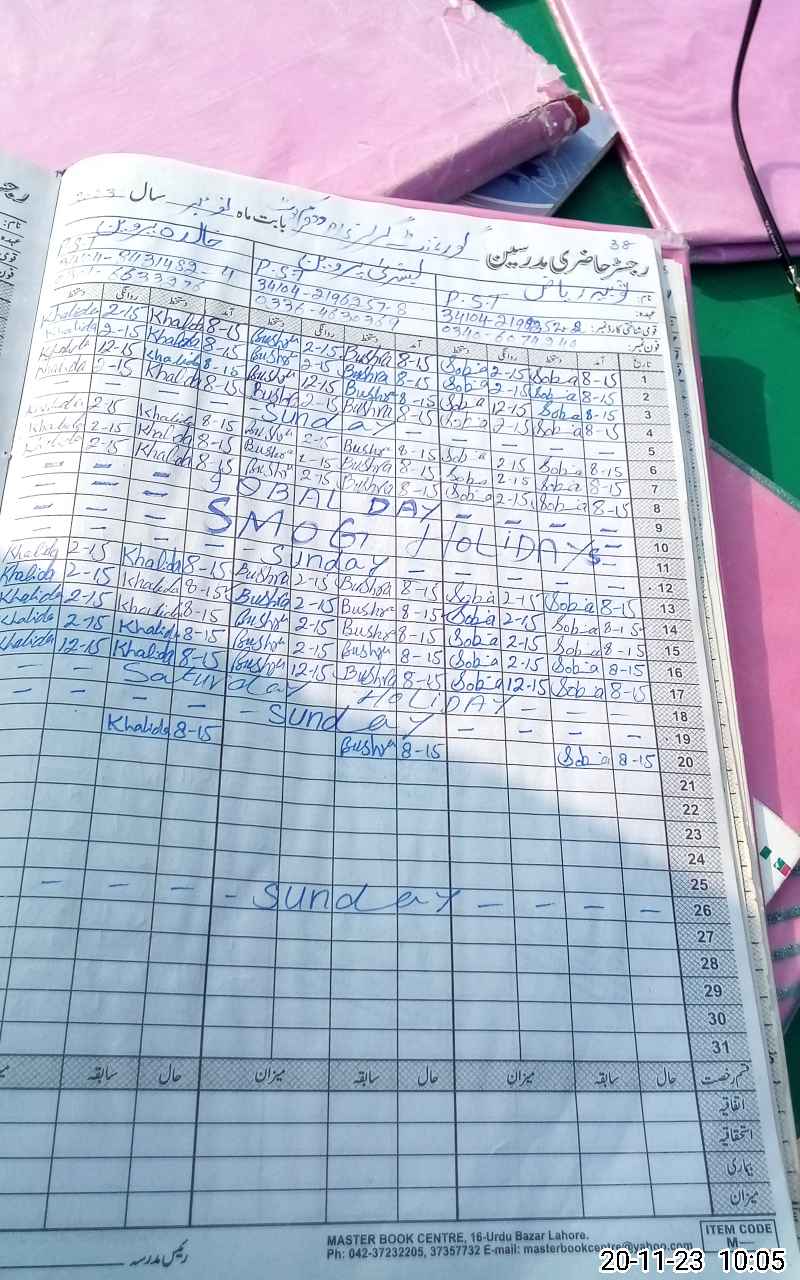 38
رجسٹر حاضری مدرسین
بابت ماہ نومبر سال 2023
نام:
عہدہ:
قومی شناختی کارڈ نمبر:
فون نمبر:
P.S.T
P.S.T
34104-2196257-8
0336-4630359
P.S.T
خالدہ پروین
تاریخ آمد دستخط روانگی دستخط آمد دستخط روانگی دستخط آمد دستخط روانگی دستخط
1 8-15 Sobia 2-15 Sobia 8-15 Bushra 2-15 Bushra 8-15 Khalida 2-15 Khalida
2 8-15 Sobia 2-15 Sobia 8-15 Bushra 2-15 Bushra 8-15 Khalida 2-15 Khalida
3 8-15 Sobia 12-15 Sobia 8-15 Bushra 12-15 Bushra 8-15 Khalida 12-15 Khalida
4 8-15 Sobia 2-15 Sobia 8-15 Bushra 2-15 Bushra 8-15 Khalida 2-15 Khalida
5 - - - - Sunday - - -
6 8-15 Sobia 2-15 Sobia 8-15 Bushra 2-15 Bushra 8-15 Khalida 2-15 Khalida
7 8-15 Sobia 2-15 Sobia 8-15 Bushra 2-15 Bushra 8-15 Khalida 2-15 Khalida
8 8-15 Sobia 2-15 Sobia 8-15 Bushra 2-15 Bushra 8-15 Khalida 2-15 Khalida
9 - - - - DAY - - -
10 SMOG HOLIDAYS
11
12 - - - - Sunday - - -
13 8-15 Sobia 2-15 Sobia 8-15 Bushra 2-15 Bushra 8-15 Khalida 2-15 Khalida
14 8-15 Sobia 2-15 Sobia 8-15 Bushra 2-15 Bushra 8-15 Khalida 2-15 Khalida
15 8-15 Sobia 2-15 Sobia 8-15 Bushra 2-15 Bushra 8-15 Khalida 2-15 Khalida
16 8-15 Sobia 2-15 Sobia 8-15 Bushra 2-15 Bushra 8-15 Khalida 2-15 Khalida
17 8-15 Sobia 12-15 Sobia 8-15 Bushra 12-15 Bushra 8-15 Khalida 12-15 Khalida
18 - - Saturday HOLIDAY - - -
19 - - - - Sunday - - - -
20 8-15 Sobia 8-15 Bushra 8-15 Khalida
21
22
23
24
25
26 - - - - Sunday - - - -
27
28
29
30
31
قسم رخصت حال سابقہ میزان حال سابقہ میزان حال سابقہ
اتفاقیہ
استحقاقیہ
بیماری
میزان
رئیس مدرسہ
MASTER BOOK CENTRE, 16-Urdu Bazar Lahore.
Ph: 042-37232205, 37357732 E-mail: masterbookcentre@yahoo.com
ITEM CODE
M—
20-11-23 10:05